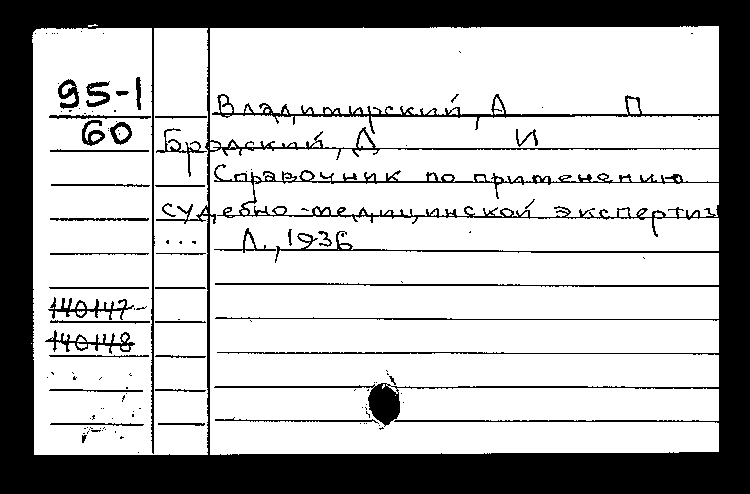 95-1
60
Владимирский, А П
Бродский, Д И
Справочник по применению
судебно-медицинской экспертиз
... Л., 1936
140147
140148